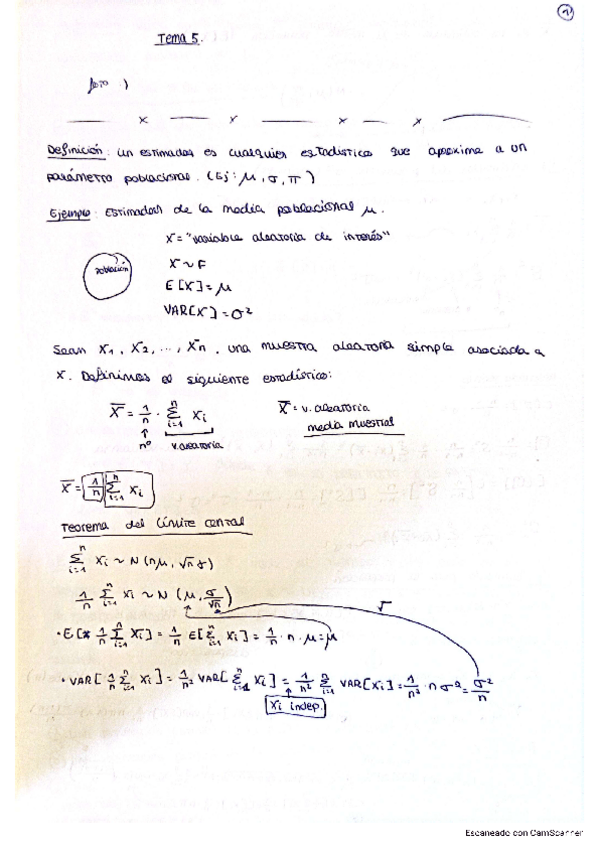 1
Tema 5.
Definición: Un estimador es cualquier estadístico que aproxima a un
parámetro poblacional. (Ej: μ, σ, π)
Ejemplo: Estimador de la media poblacional μ.
X = "variable aleatoria de interés"
población
X ~ F
E[X] = μ
VAR[X] = σ²
Sean X₁, X₂, ..., Xn, una muestra aleatoria simple asociada a
X. Definimos el siguiente estadístico:
X̄ = 1/n · Σᵢ₌₁ⁿ Xi
X̄ = v. aleatoria
media muestral
nº v. aleatoria
X̄ = 1/n Σᵢ₌₁ⁿ Xi
Teorema del límite central
Σᵢ₌₁ⁿ Xi ~ N (nμ, √n σ)
1/n Σᵢ₌₁ⁿ Xi ~ N (μ, σ/√n)
√
· E[1/n Σᵢ₌₁ⁿ Xi] = 1/n E[Σᵢ₌₁ⁿ Xi] = 1/n · n · μ = μ
· VAR[1/n Σᵢ₌₁ⁿ Xi] = 1/n² VAR[Σᵢ₌₁ⁿ Xi] = 1/n² Σᵢ₌₁ⁿ VAR[Xi] = 1/n² · n σ² = σ²/n
Xi indep.
Escaneado con CamScanner